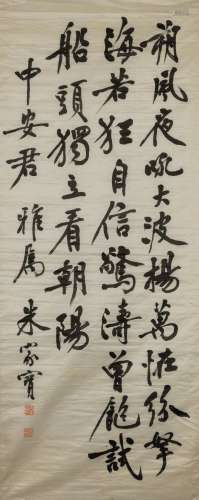 朔風夜吼大波揚萬恠紛拏
海若狂自信驚濤曾飽試
船頭獨立看朝陽
中安君 雅属 朱家寶